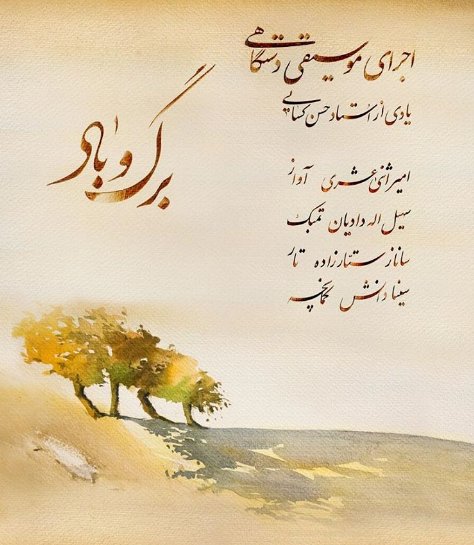 اجرای موسیقی دستگاهی
یادی از استاد حسن کسایی
برگ و باد
امیر اثنی عشری آواز
سهیل اله دادیان تمبک
ساناز ستارزاده تار
سینا دانش کمانچه